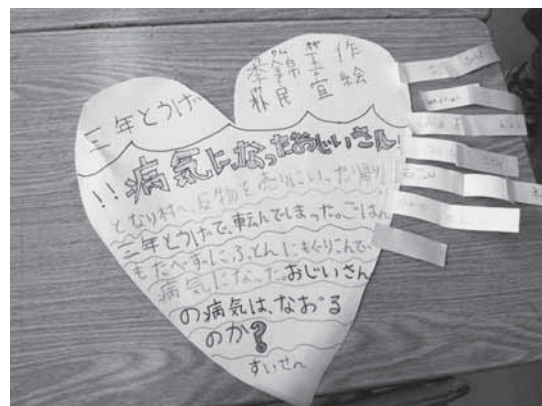 三年とうげ
李錦玉 作
朴民宜 絵
!!病気になったおじいさん!
となり村へ、反物を売りにいった帰り
三年とうげで、転んでしまった。ごはん
もたべずに、ふとんにもぐりこんで、
病気になった。おじいさん
の病気は、なおる
のか?
すいせん